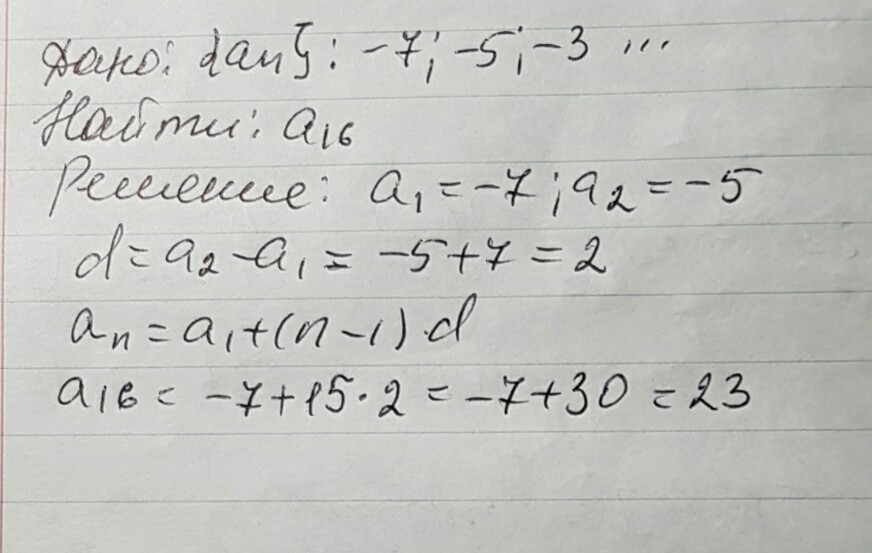 Дано: {an}: -7; -5; -3 ...
Найти: a₁₆
Решение: a₁ = -7; a₂ = -5
d = a₂ - a₁ = -5 + 7 = 2
aₙ = a₁ + (n - 1) · d
a₁₆ = -7 + 15 · 2 = -7 + 30 = 23